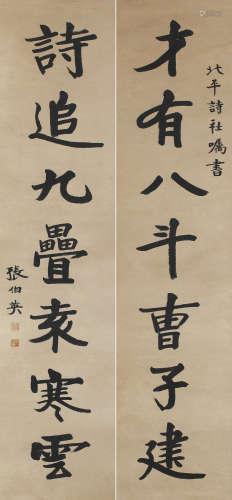 才有八斗曹子建
北平詩社囑書
詩追九疊袁寒雲
張伯英